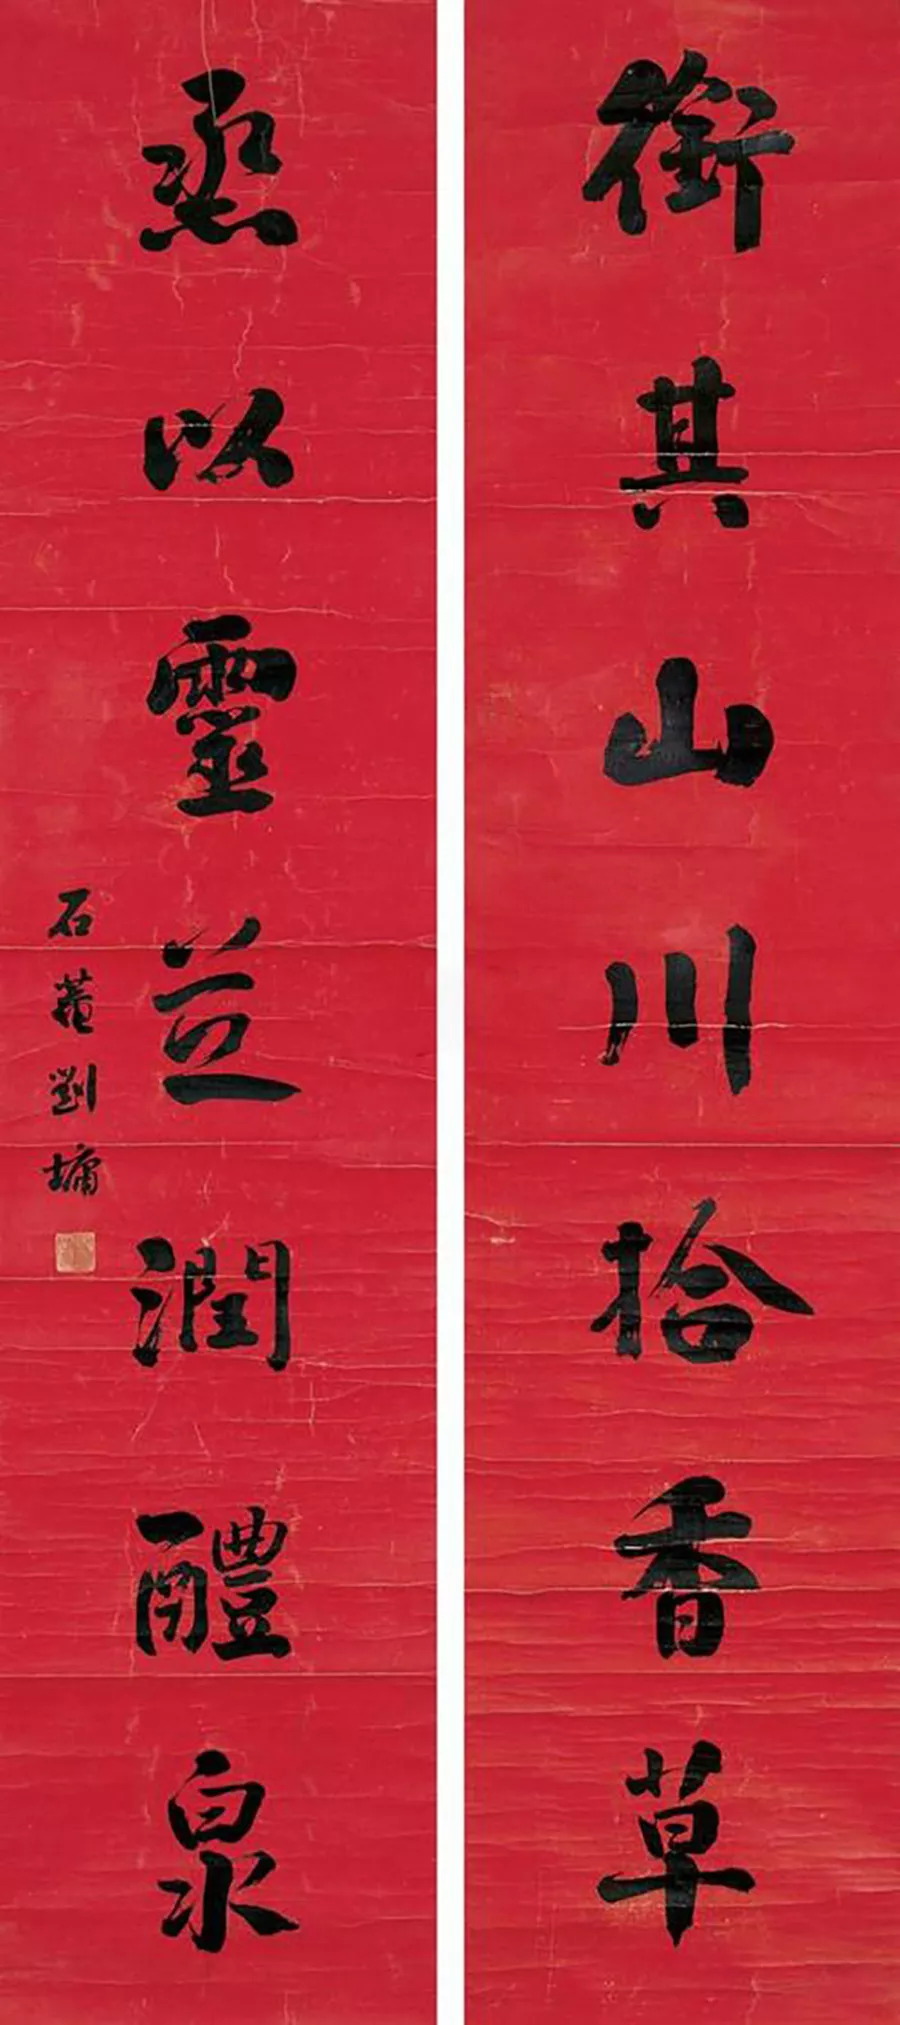 銜其山川拾香草
烝以靈芝潤醴泉
石菴劉墉